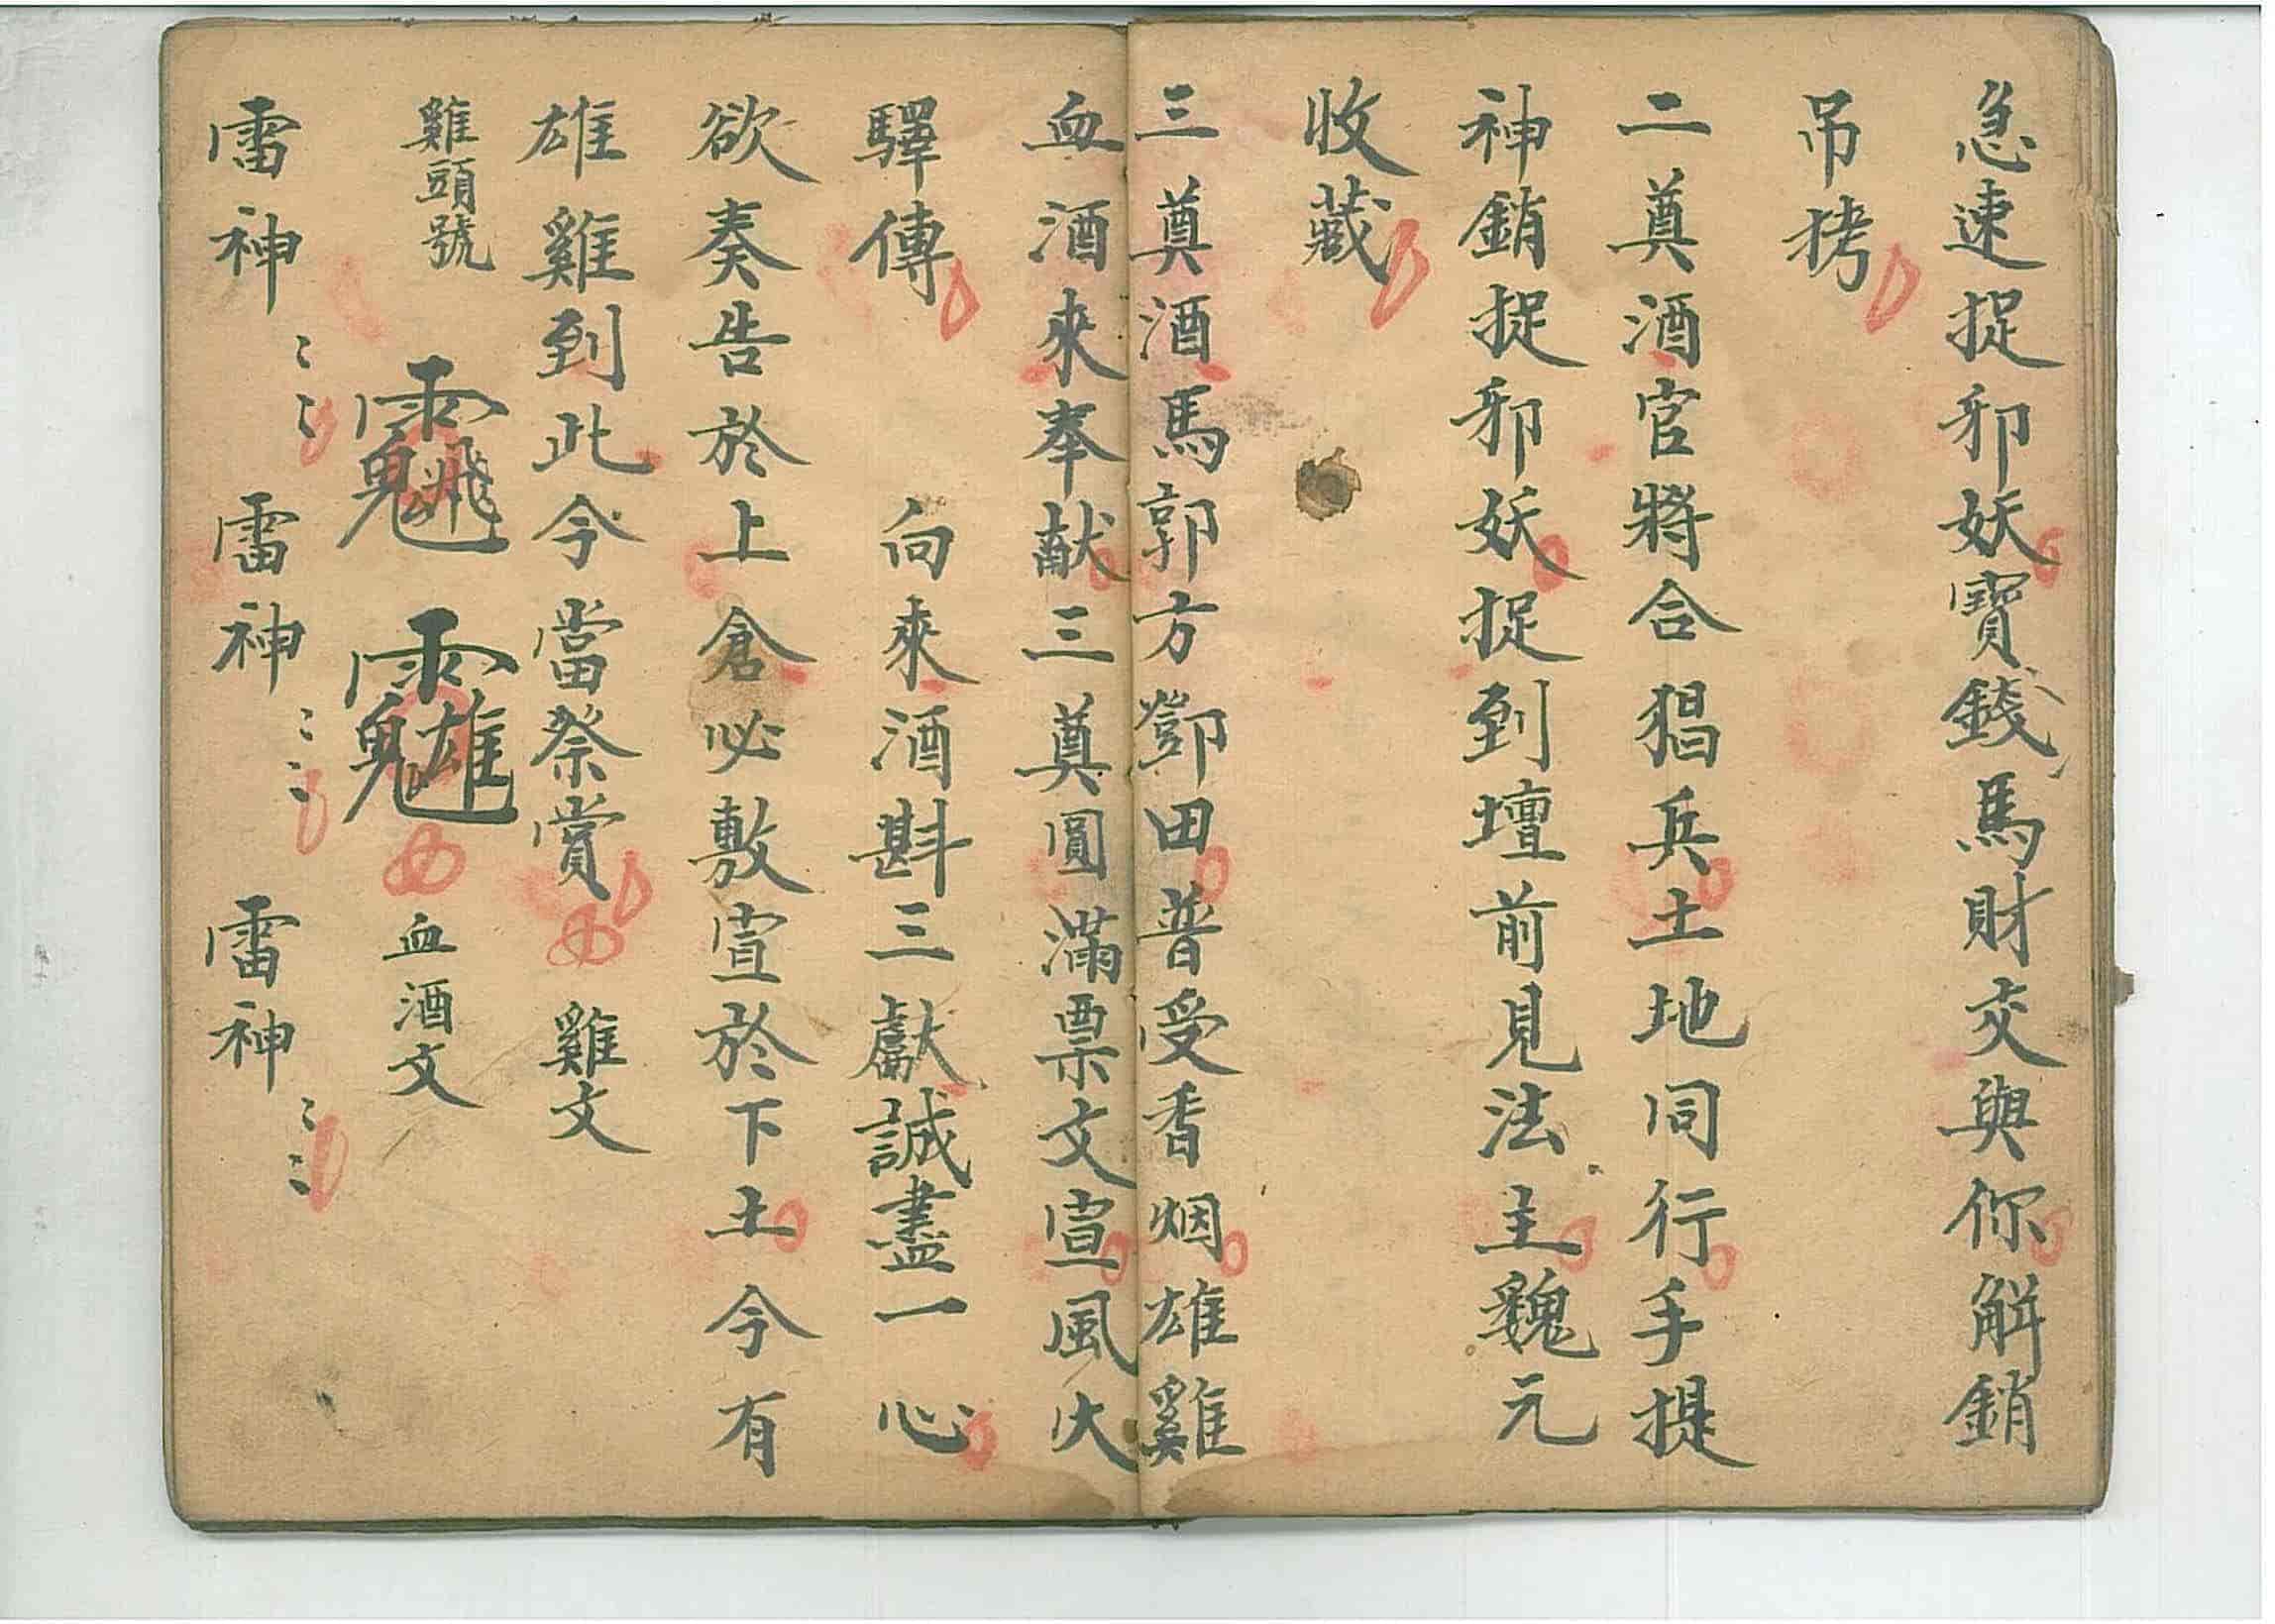 急速捉邪妖寳錢馬財交與你解銷
吊拷
二奠酒官將合猖兵土地同行手提
神銷捉邪妖捉到壇前見法主魏元
收藏
三奠酒馬郭方鄧田普受香烟雄雞
血酒來奉献三奠圓滿票文宣風火
驛傳　向來酒斟三獻誠盡一心
欲奏告於上倉必敷宣於下土今有
雄雞到此今當祭賞　雞文
雞頭號　血酒文
雷神〻〻雷神〻〻雷神〻〻